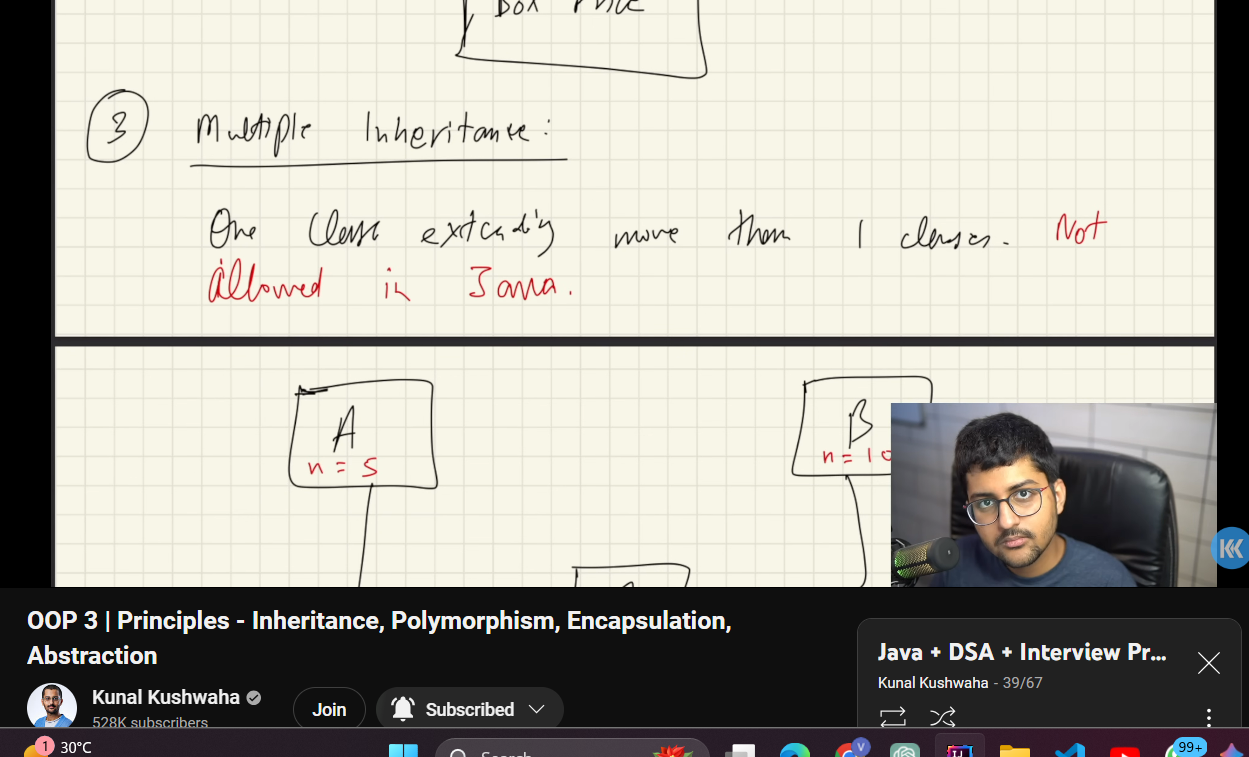 Box Price
3
Multiple Inheritance:
One Class extending more than 1 classes. Not
allowed in Java.
A
n = 5
B
n = 10
OOP 3 | Principles - Inheritance, Polymorphism, Encapsulation,
Abstraction
Kunal Kushwaha
528K subscribers
Join
Subscribed
Java + DSA + Interview Pr...
Kunal Kushwaha - 39/67
1
30°C
Search
V
99+